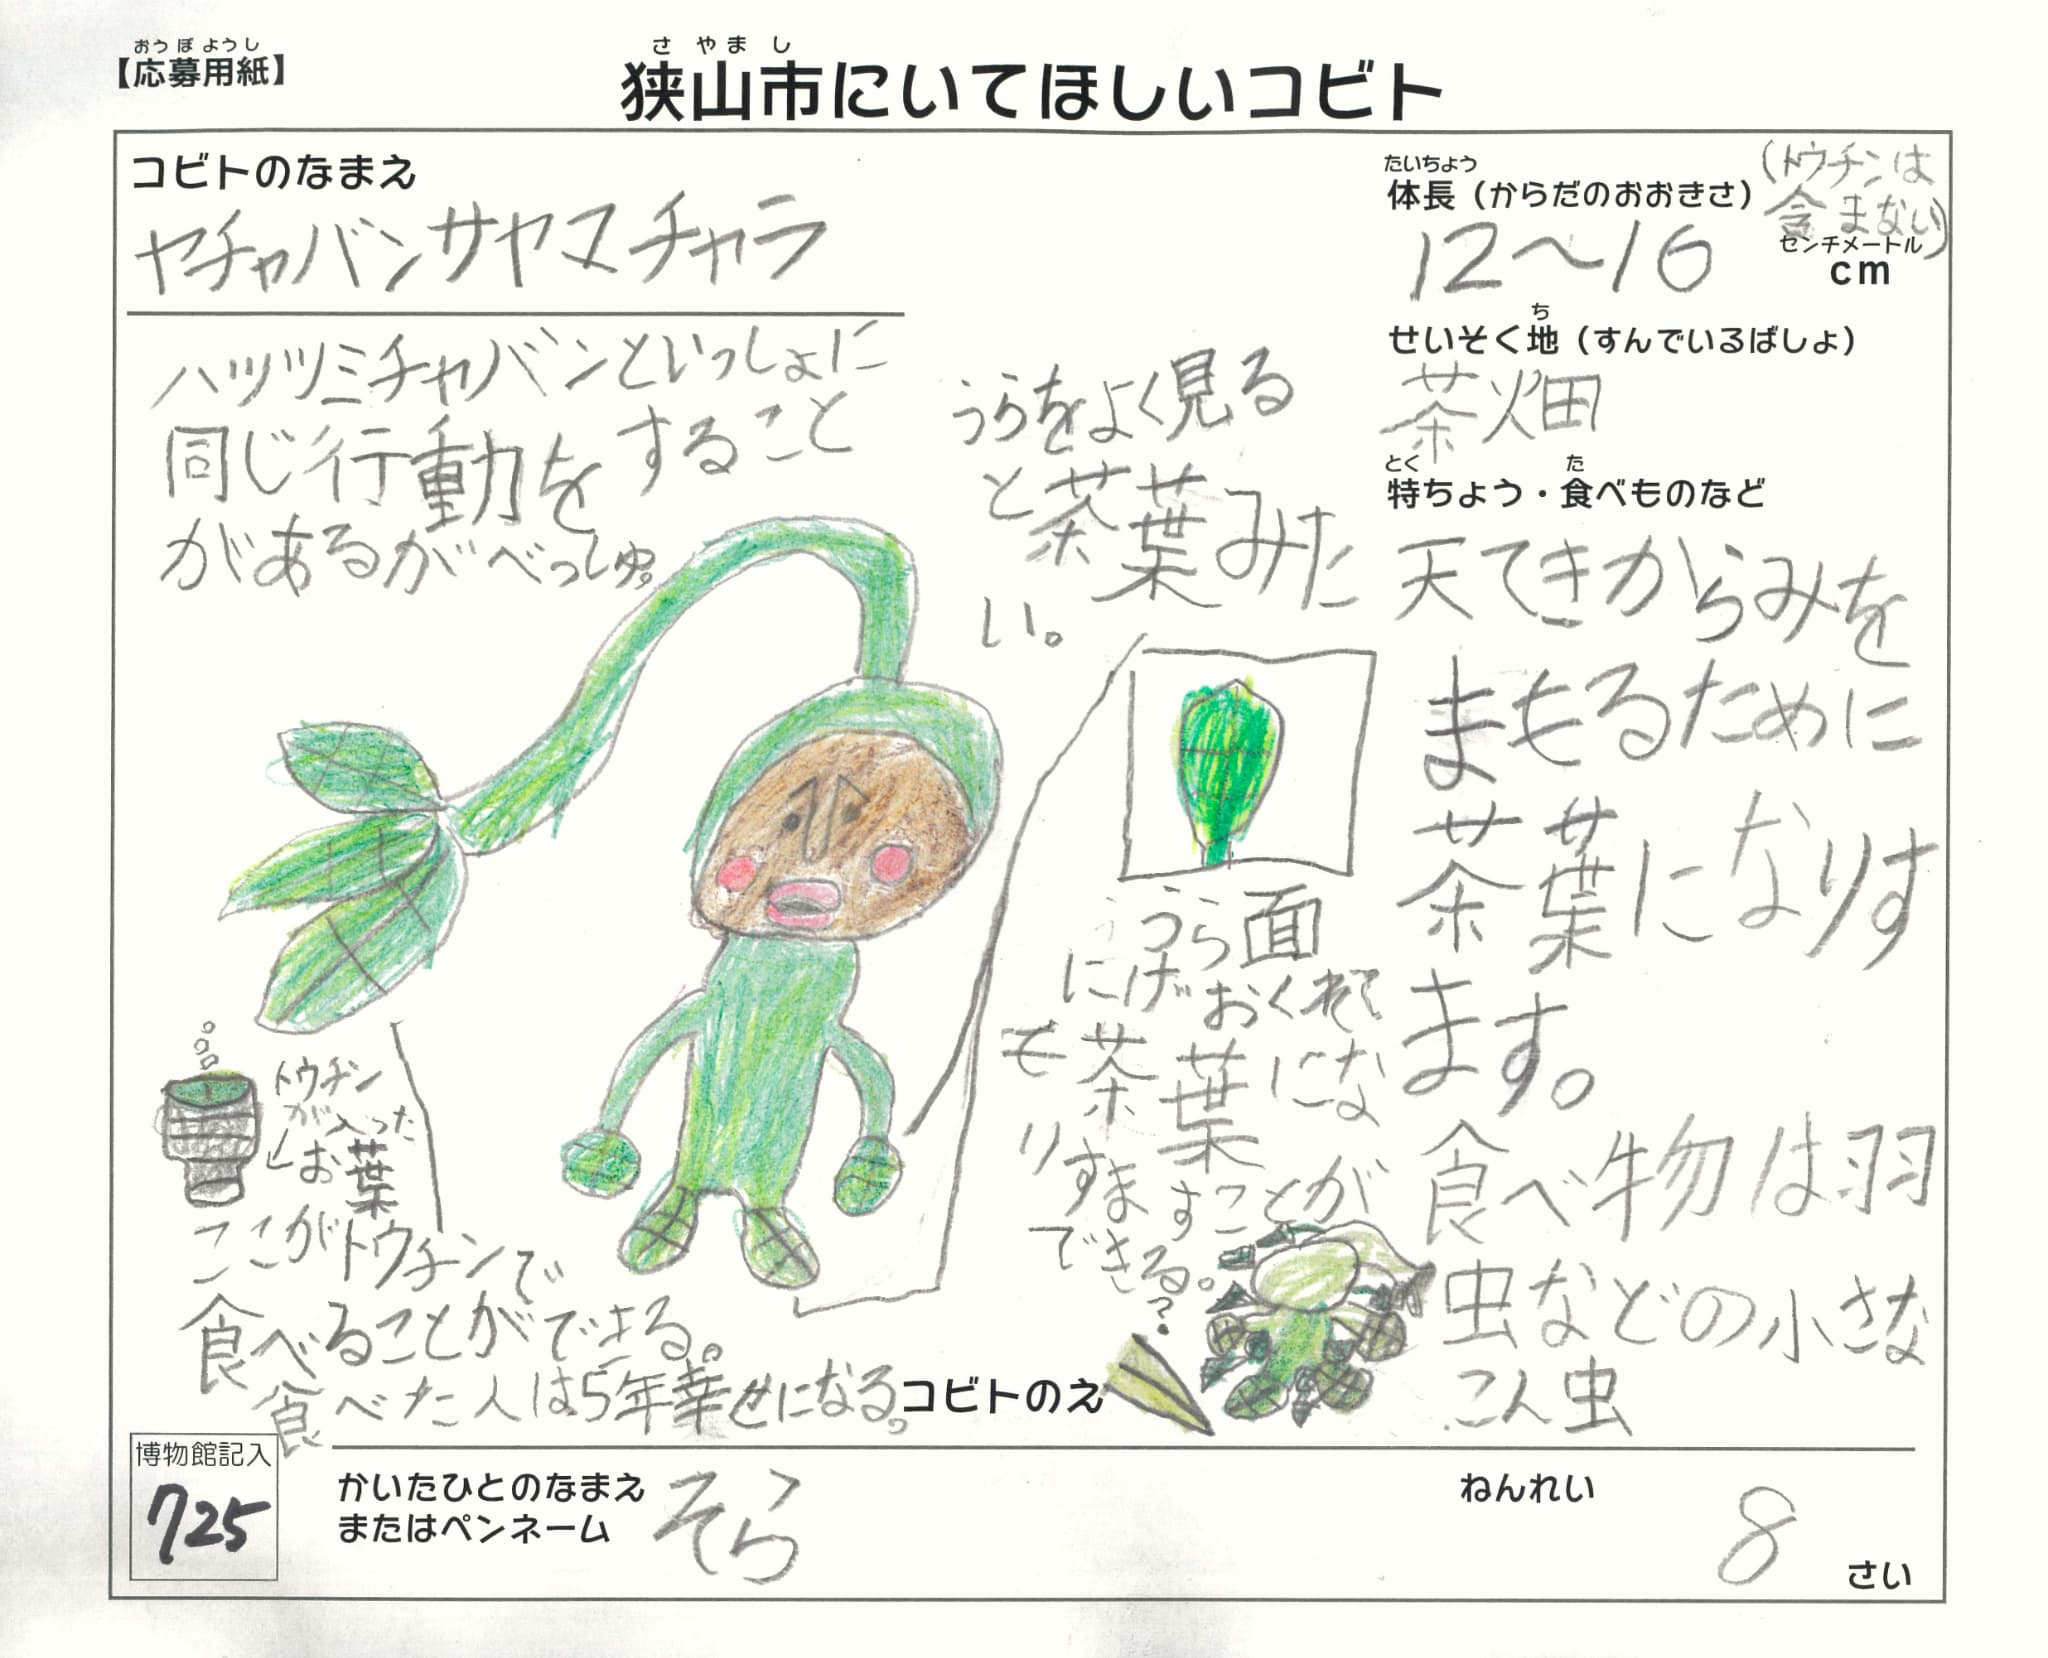 おうぼようし
【応募用紙】
さやまし
狭山市にいてほしいコビト
コビトのなまえ
ヤチャバンサヤマチャラ
たいちょう
体長（からだのおおきさ）
(トウチンは
含まない)
12〜16
センチメートル
cm
ハツツミチャバンといっしょに
同じ行動をすること
があるがべっしゅ。
うらをよく見る
と茶葉みた
い。
ち
せいそく地（すんでいるばしょ）
茶畑
とく　た
特ちょう・食べものなど
天てきからみを
まもるために
茶葉になりす
ます。
食べ物は羽
虫などの小さな
こん虫
うら面
にげおくれて
も茶葉にな
りすますことが
できる。
?
トウチン
が入った
お葉
ここがトウチンで
食べることができる。
食べた人は5年幸せになる。
コビトのえ
博物館記入
725
かいたひとのなまえ
またはペンネーム
そら
ねんれい
8
さい